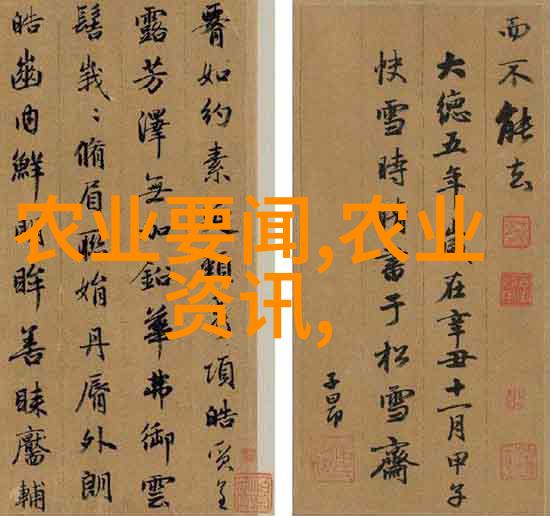 而不能去
大德五年歲在辛丑十一月甲子
快雪時晴書于松雪齋
子昂
如約素項皓質呈
露芳澤無加鉛華弗御雲
髻峩〻脩眉聯娟丹脣外朗
皓齒内鮮明眸善睞靨輔
农业要闻,农业
资讯,